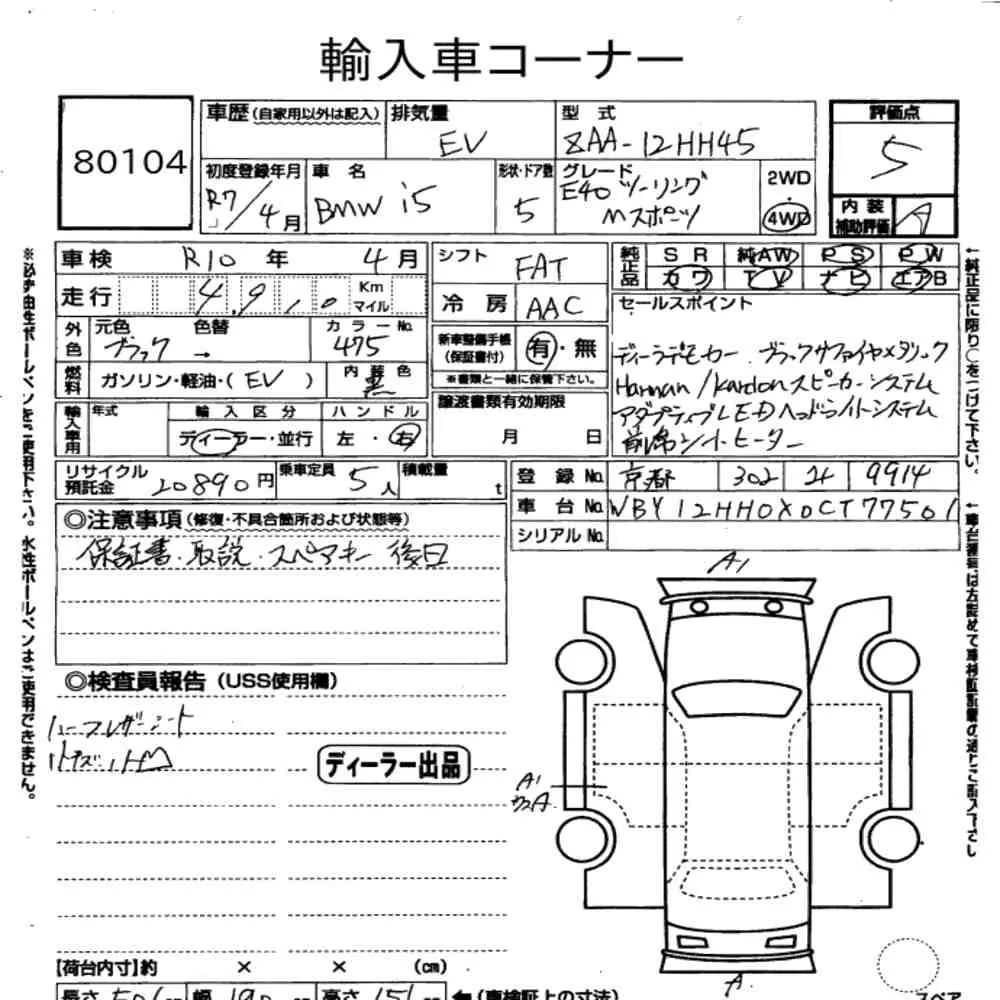 輸入車コーナー
80104
車歴(自家用以外は記入) 排気量 EV 型式 ZAA-12HH45
評価点 5
初度登録年月 R7/4月 車名 BMW i5 形状・ドア数 5 グレード E40 ツーリング Mスポーツ 2WD 4WD
内装補助評価 A
車検 R10年 4月
走行 4,910 Km マイル
シフト FAT
冷房 AAC
純正品 SR 純AW PS PW
カワ TV ナビ エアB
外色 元色 ブラック 色替 → カラーNo. 475
燃料 ガソリン・軽油・(EV) 内装色 黒
新車整備手帳(保証書付) 有・無
※書類と一緒に保管下さい。
セールスポイント
ディーラーデモカー、ブラックサファイヤメタリック
Harman/Kardonスピーカーシステム
アダプティブLEDヘッドライトシステム
前席シートヒーター
輸入車用 年式 輸入区分 ディーラー・並行 ハンドル 左・右
譲渡書類有効期限 月 日
リサイクル預託金 20890円 乗車定員 5人 積載量 t
登録No. 京都 302 9914
車台No. WBY12HH0X0CT77501
シリアルNo.
◎注意事項(修復・不具合箇所および状態等)
保証書・取説・スペアキー 後日
◎検査員報告(USS使用欄)
ハーフレザーシート
ディーラー出品
A1
A1
A
※必ず油性ボールペンをご使用下さい。水性ボールペンはご使用できません。
←純正品に限り○をつけて下さい。
【荷台内寸】約 × × (cm)
長さ 506 幅 190 高さ 151 ←(車検証上の寸法)
スペア